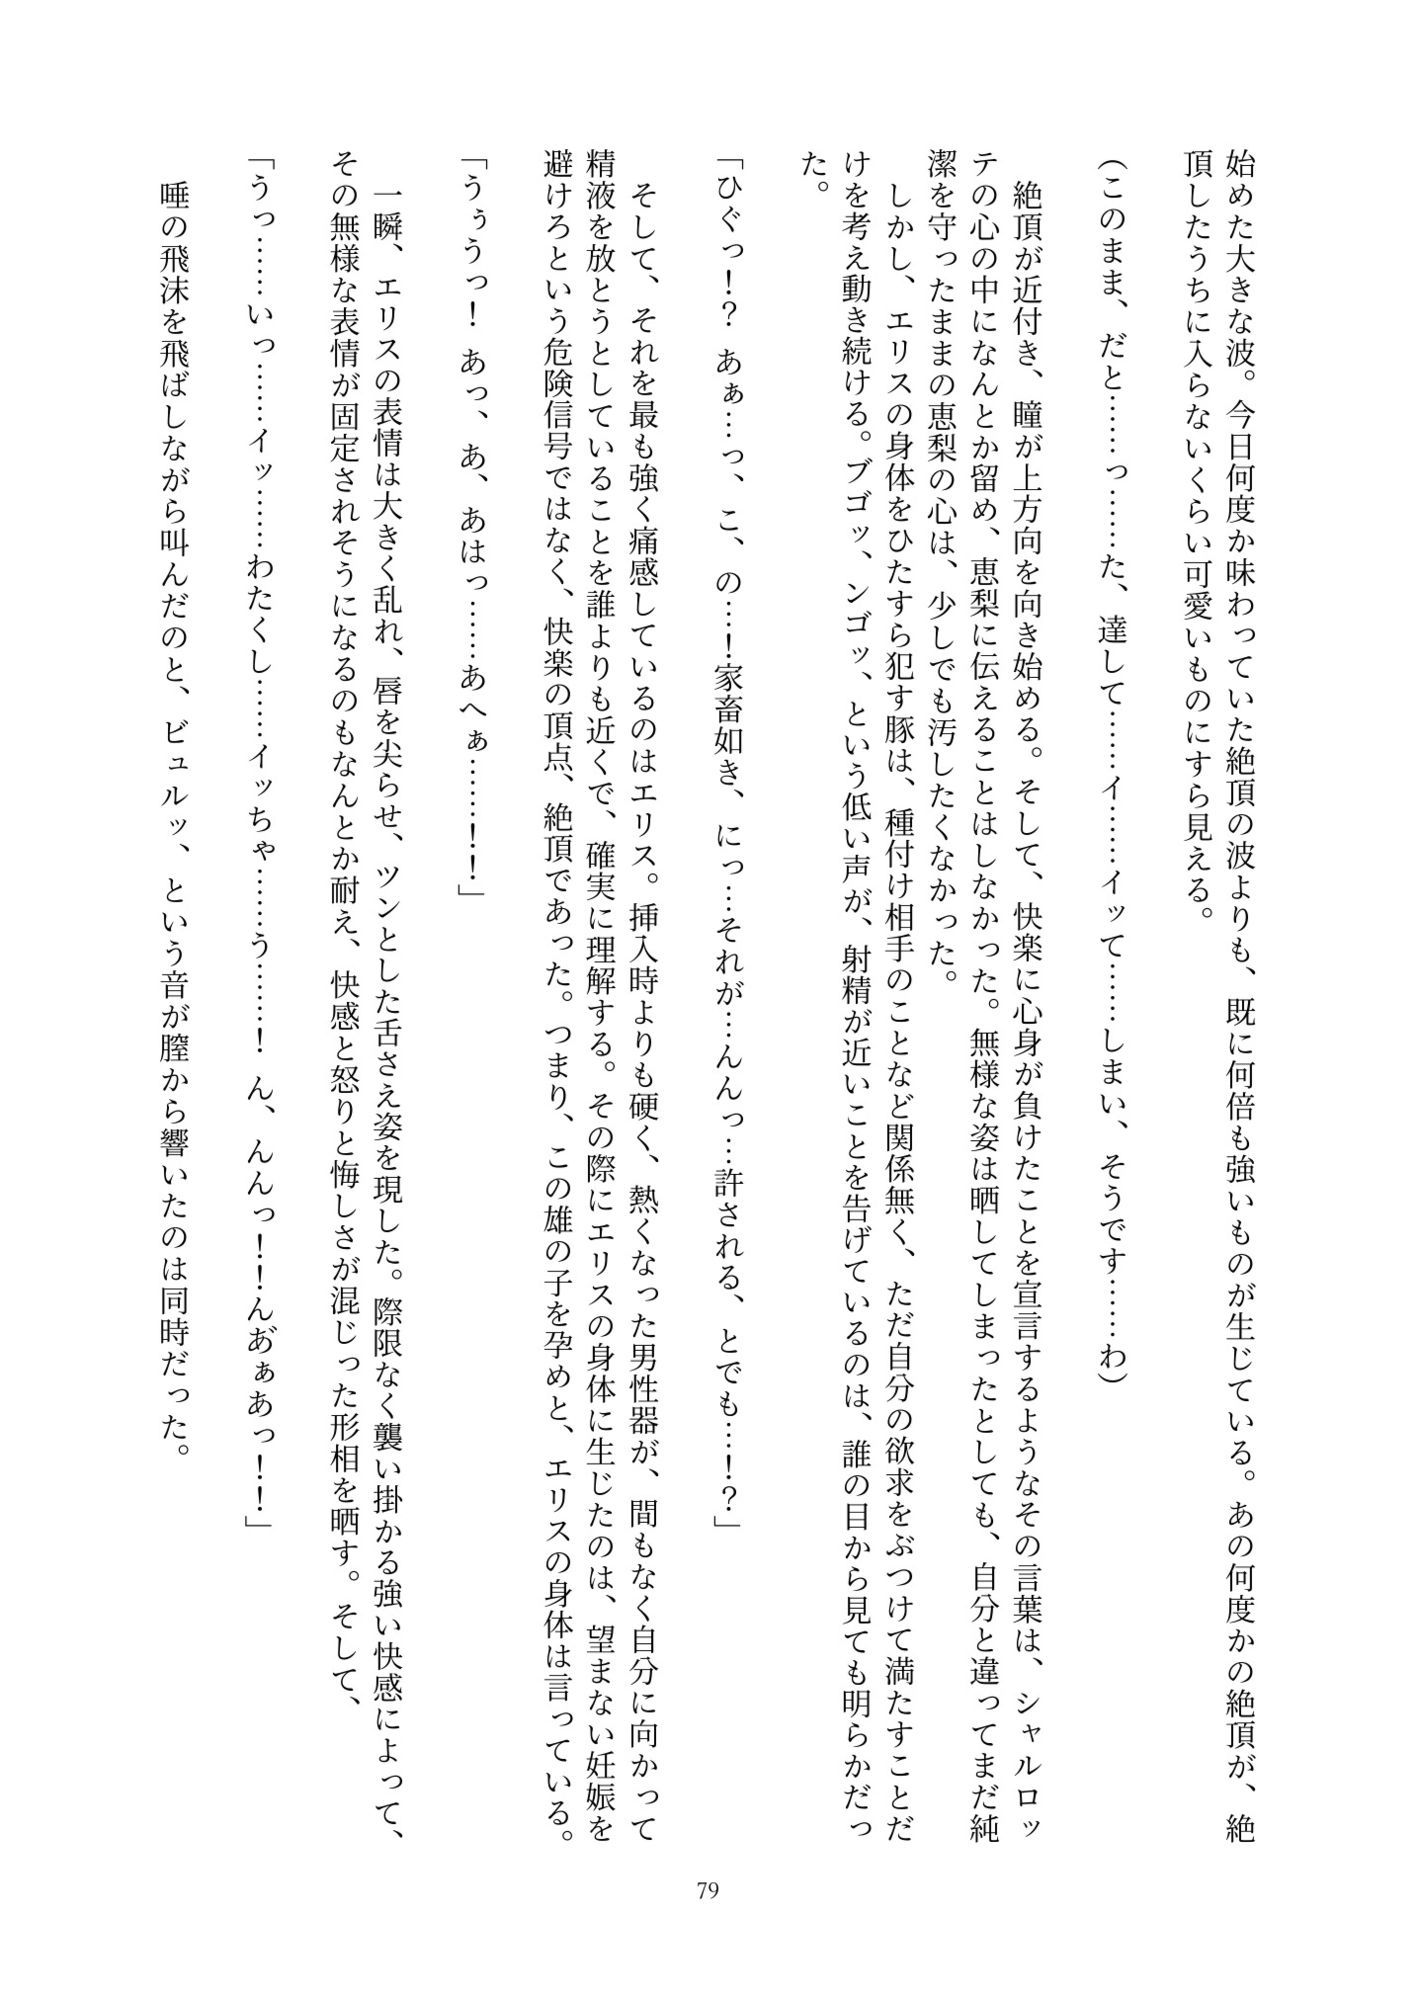 始めた大きな波。今日何度か味わっていた絶頂の波よりも、既に何倍も強いものが生じている。あの何度かの絶頂が、絶
頂したうちに入らないくらい可愛いものにすら見える。
(このまま、だと……っ……た、達して……イ……イッて……しまい、そうです……わ)
絶頂が近付き、瞳が上方向を向き始める。そして、快楽に心身が負けたことを宣言するようなその言葉は、シャルロッ
テの心の中になんとか留め、恵梨に伝えることはしなかった。無様な姿は晒してしまったとしても、自分と違ってまだ純
潔を守ったままの恵梨の心は、少しでも汚したくなかった。
しかし、エリスの身体をひたすら犯す豚は、種付け相手のことなど関係無く、ただ自分の欲求をぶつけて満たすことだ
けを考え動き続ける。ブゴッ、ンゴッ、という低い声が、射精が近いことを告げているのは、誰の目から見ても明らかだっ
た。
「ひぐっ！？ あぁ…っ、こ、の…！家畜如き、にっ…それが…んんっ…許される、とでも…！？」
そして、それを最も強く痛感しているのはエリス。挿入時よりも硬く、熱くなった男性器が、間もなく自分に向かって
精液を放とうとしていることを誰よりも近くで、確実に理解する。その際にエリスの身体に生じたのは、望まない妊娠を
避けろという危険信号ではなく、快楽の頂点、絶頂であった。つまり、この雄の子を孕めと、エリスの身体は言っている。
「うぅうっ！ あっ、あ、あはっ……あへぁ……！！」
一瞬、エリスの表情は大きく乱れ、唇を尖らせ、ツンとした舌さえ姿を現した。際限なく襲い掛かる強い快感によって、
その無様な表情が固定されそうになるのもなんとか耐え、快感と怒りと悔しさが混じった形相を晒す。そして、
「うっ……いっ……イッ……わたくし……イッちゃ……う……！ ん、んんっ！！んあ゙ぁあっ！！」
唾の飛沫を飛ばしながら叫んだのと、ビュルッ、という音が膣から響いたのは同時だった。
79